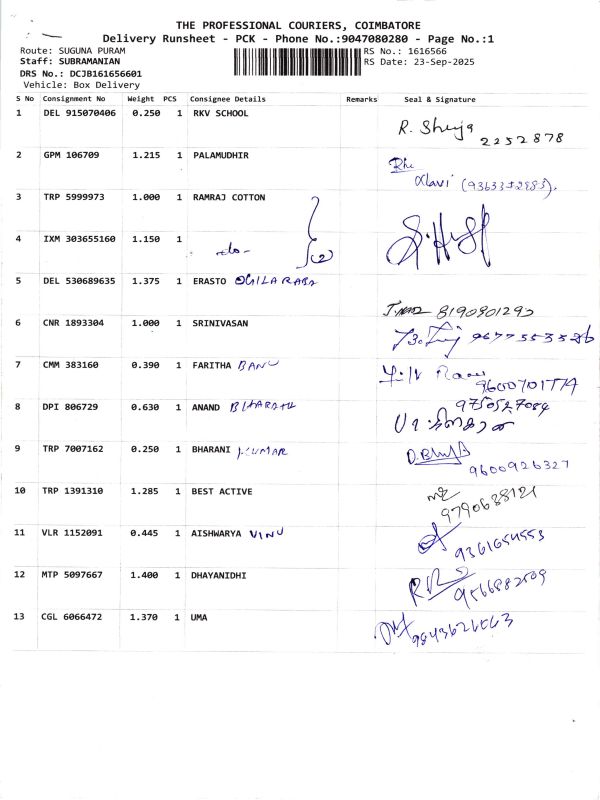 THE PROFESSIONAL COURIERS, COIMBATORE
Delivery Runsheet - PCK - Phone No.:9047080280 - Page No.:1
Route: SUGUNA PURAM RS No.: 1616566
Staff: SUBRAMANIAN RS Date: 23-Sep-2025
DRS No.: DCJB161656601
Vehicle: Box Delivery
S No Consignment No Weight PCS Consignee Details Remarks Seal & Signature
1 DEL 915070406 0.250 1 RKV SCHOOL
2252878
2 GPM 106709 1.215 1 PALAMUDHIR
3 TRP 5999973 1.000 1 RAMRAJ COTTON
4 IXM 303655160 1.150 1 -do- (2)
5 DEL 530689635 1.375 1 ERASTO
8190801292
6 CNR 1893304 1.000 1 SRINIVASAN
7 CMM 383160 0.390 1 FARITHA BANU
8 DPI 806729 0.630 1 ANAND BHARATH
9750527084
9 TRP 7007162 0.250 1 BHARANI KUMAR
9600926327
10 TRP 1391310 1.285 1 BEST ACTIVE
9790638121
11 VLR 1152091 0.445 1 AISHWARYA VINU
9361654553
12 MTP 5097667 1.400 1 DHAYANIDHI
13 CGL 6066472 1.370 1 UMA